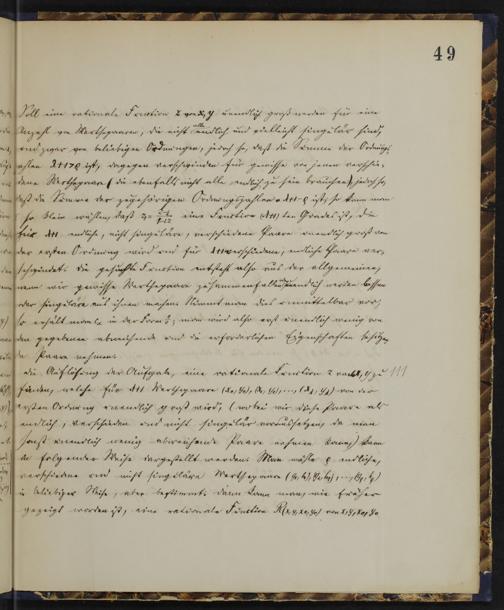 49
Soll eine rationale Function z von x, y unendlich groß werden für eine
Anzahl von Werthepaaren, die nicht alle endlich und vielleicht singulär sind,
und zwar von beliebigen Ordnungen, jedoch so, daß die Summe der Ordnungs-
zahlen λ+1>ρ ist, dagegen verschwinden für gewisse von jenen verschie-
dene Werthepaare (die ebenfalls nicht alle endlich zu sein brauchen), jedoch so,
daß die Summe der zugehörigen Ordnungszahlen = λ+1-ρ ist; so kann man
so klein wählen, daß eine Function (λ+1)ten Grades ist, die
für λ+1 endliche, nicht singuläre, verschiedene Paare unendlich groß von
der ersten Ordnung wird und für λ+1 verschiedene, endliche Paare ver-
schwindet. die gesuchte Function entsteht also aus der allgemeinen,
wenn wir gewisse Werthepaare zusammenfallen, unendlich werden lassen
oder singuläre aus ihnen machen. Nimmt man dies unmittelbar vor,
so erhält man z in der Form; man wird also erst unendlich wenig von
den gegebenen abweichende und die erforderlichen Eigenschaften besitzen-
de Paare nehmen.
die Auflösung der Aufgabe, eine rationale Function z von x, y zu
finden, welche für λ+1 Werthepaare (x₀,y₀), (x₁,y₁), ..., (x_λ,y_λ) von der
ersten Ordnung unendlich groß wird, (wobei wir diese Paare als
endlich, verschieden und nicht singulär voraussetzen, da man
sonst unendlich wenig abweichende Paare nehmen kann,) kann
in folgender Weise dargestellt werden. Man wähle ρ endliche,
verschiedene und nicht singuläre Werthepaare
in beliebiger Weise, aber bestimmt; dann kann man, wie früher
gezeigt worden ist, eine rationale Function R(x,y,x₀,y₀) von x,y,x₀,y₀